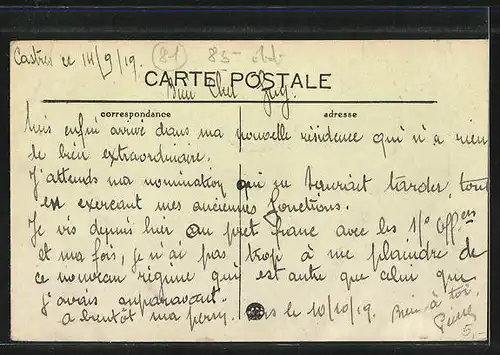 Castres ce 14/9/19. (81) 85-
CARTE POSTALE
Bien cher
correspondance adresse
Suis enfin arrivé dans ma nouvelle résidence qui n'a rien
de bien extraordinaire.
J'attends ma nomination qui ne saurait tarder, tout
en exerçant mes anciennes fonctions.
Je vis depuis hier au prêt franc avec les s/s offers
et ma fois, je n'ai pas trop à me plaindre de
ce nouveau régime qui est autre que celui que
j'avais auparavant.
a bientôt ma perm. vers le 10/10/19. Bien à toi,
Pierre
5,-